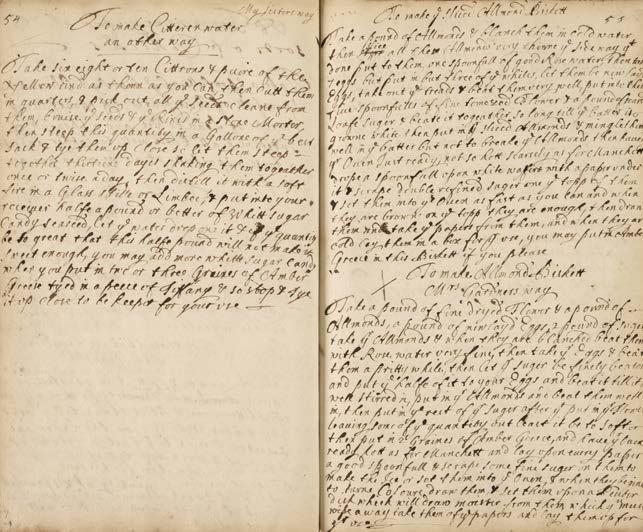 54
My sisters way
To make Citteren water
an other way
Take six eight or ten Cittrons & paire of the
yellow rind as thenn as you can, then cutt them
in quarters, & pick out all ye seeds cleane from
them, bruise ye seeds & ye Rind in a stone Morter
then steep this quantity in a Gallone of ye best
sack & tye them up close so let them steep
together thirteen dayes shaking them together
once or twice a day, then distill it with a soft
fire in a Glass still or Limbec, & put into your
receiver halfe a pound or better of Whitt sugar
Candy seaseed let ye water drop on it & if ye quantity
be to great that this halfe pound will not make it
sweet enough, you may add more whitt sugar Candy
when you put in two or three Graines of Amber
Greece tyed in a peece of Tiffany & so stop & tye
it up close to be keept for your use
55
To make ye sliced Allmond Biskett
Take a pound of Allmonds & blanch them in cold water
then slice all them Allmonds very thinne ye side way
put to them, one spoonfull of good Rose water, then
7 eggs but put in but three of ye whites, let them be new laid
Eggs, take out ye treads & beat them very well, put into them
five spoonfulls of fine Flower & a pound of
Loafe sugar & beate it together so long till ye batter is
growne white then put in ye sliced Allmonds & mingle them
well in batter but not to breake ye Allmonds then have
ye Oven just ready, not so hott scarcely as for Manchett
drope a spoonfull upon white wafers with a paper under
it & scrape double refined suger one ye topp of them
& set them into ye Oven as fast as you can and when
they are browne on ye topp they are enough, then draw
them and take ye papers from them, and when they are
cold lay them in a box for use, you may put in Amber
Greece in this Biskett if you please
To make Allmond Biskett
Mrs Gardners way
Take a pound of fine dryed Flower & a pound of
Allmonds, a pound of new layd Eggs, 2 pound of sugar
take ye Allmonds & when they are blanched beat them
with Rose water very fine, then take ye Eggs & beat
them a pritty while, then let ye suger be finely beaten
and put ye halfe of it to your Eggs and beat it till it is
well stirred in, put in ye Allmonds and beat them well
in, then put in ye rest of ye suger after ye put in ye Flower
leaving some of ye quantity but least it be to soft
then put in 2 Graines of Amber Greece, and have ye
ready hott as for Manchett and lay upon every paper
a good spoonfull & scrape some fine sugar on them to
make the Ice so set them into ye Oven, & when they begine
to turne Colour, draw them & set them upon a
dish which will draw moister from them which ye must
wipe away take them of ye papers and lay them up for
yr use